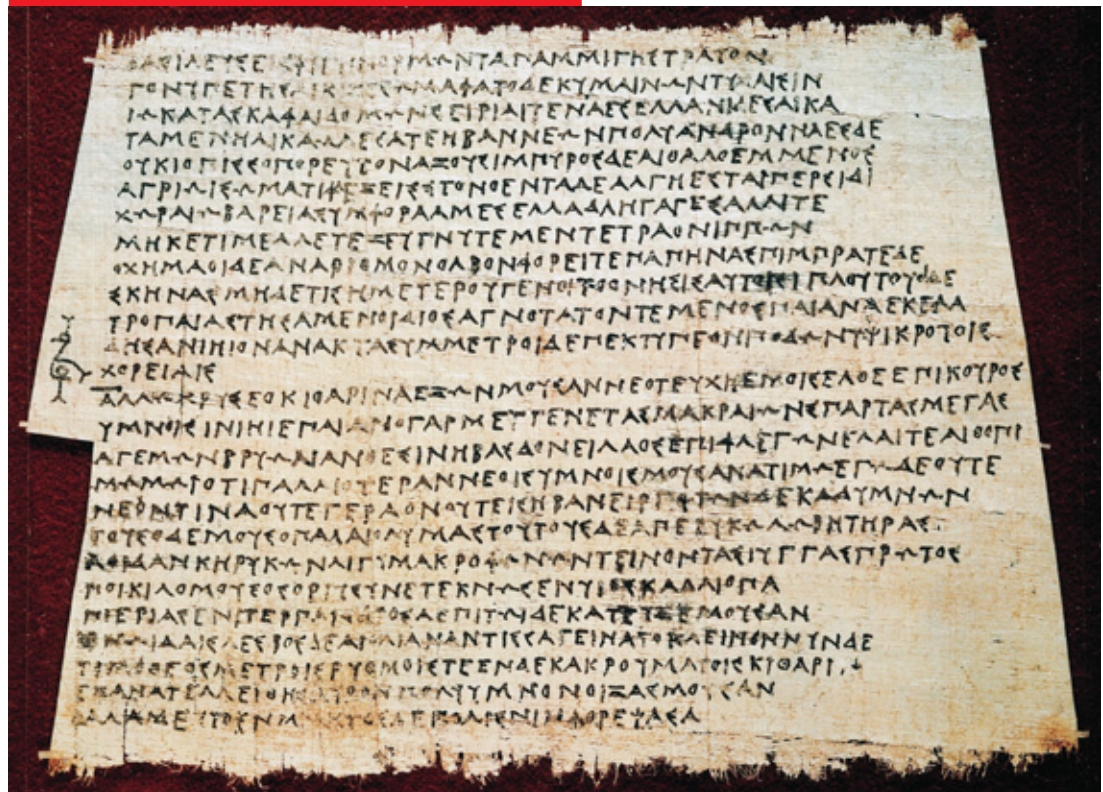 ΒΑΣΙΛΕΥΣΕΙΣΦΥΓΗΝΟΡΜΩΝΤΑΠΑΜΜΙΓΗΣΤΡΑΤΟΝ
ΓΟΝΥΠΕΤΗΣΑΙΚΙΖΕΣΩΜΑΦΑΤΟΔΕΚΥΜΑΙΝΩΝΤΥΧΑΙΣΙΝ
ΙΩΚΑΤΑΣΚΑΦΑΙΔΟΜΩΝΣΕΙΡΙΑΙΤΕΝΑΕΣΕΛΛΑΝΙΔΕΣΑΙΚΑ
ΤΑΜΕΝΗΛΙΚΑΩΛΕΣΑΤΕΗΒΑΝΝΕΩΝΠΟΛΥΑΝΔΡΟΝΝΑΕΣΔΕ
ΟΥΚΙΟΠΙΣΣΟΠΟΡΕΥΤΟΝΑΞΟΥΣΙΜΠΥΡΟΣΔΕΑΙΘΑΛΟΕΜΜΕΝΟΣ
ΑΓΡΙΩΙΣΩΜΑΤΙΦΛΕΞΕΙΣΣΤΟΝΟΕΝΤΑΔΕΑΛΓΗΕΣΤΑΙΠΕΡΣΙΔΙ
ΧΩΡΑΙΩΒΑΡΕΙΑΣΥΜΦΟΡΑΑΜΕΣΕΛΛΑΔΑΗΓΑΓΕΣΑΛΛΙΤΕ
ΜΗΚΕΤΙΜΕΛΛΕΤΕΖΕΥΓΝΥΤΕΜΕΝΤΕΤΡΑΟΝΙΠΠΩΝ
ΟΧΗΜΑΟΙΔΕΑΝΑΡΙΘΜΟΝΟΛΒΟΝΦΟΡΕΙΤΕΠΑΠΗΝΑΣΠΙΜΠΡΑΤΕΔΕ
ΣΚΗΝΑΣΜΗΔΕΤΙΣΗΜΕΤΕΡΟΥΓΕΝΟΙΤΟΟΝΗΣΙΣΑΥΤΟΙΣΙΠΛΟΥΤΟΥΟΙΔΕ
ΤΡΟΠΑΙΑΣΤΗΣΑΜΕΝΟΙΔΙΟΣΑΓΝΟΤΑΤΟΝΤΕΜΕΝΟΣΠΑΙΑΝΑΕΚΕΛΑ
ΔΗΣΑΝΙΗΙΟΝΑΝΑΚΤΑΣΥΜΜΕΤΡΟΙΔΕΠΕΚΤΥΠΕΟΝΠΟΔΩΝΥΨΙΚΡΟΤΟΙΣ
ΧΟΡΕΙΑΙΣ
ΑΛΛΩΧΡΥΣΕΟΚΙΘΑΡΙΝΑΕΞΩΝΜΟΥΣΑΝΝΕΟΤΕΥΧΗΕΜΟΙΣΕΛΘΕΕΠΙΚΟΥΡΟΣ
ΥΜΝΟΙΣΙΝΙΗΙΕΠΑΙΑΝΟΓΑΡΜΕΥΓΕΝΕΤΑΣΜΑΚΡΑΙΩΝΣΠΑΡΤΑΣΜΕΓΑΣ
ΑΓΕΜΩΝΒΡΥΩΝΑΝΘΕΣΙΝΗΒΑΣΔΟΝΕΙΛΑΟΣΕΠΙΦΛΕΓΩΝΕΛΑΙΤΕΑΙΘΟΠΙ
ΜΩΜΩΙΟΤΙΠΑΛΑΙΟΤΕΡΑΝΝΕΟΙΣΥΜΝΟΙΣΜΟΥΣΑΝΑΤΙΜΩΕΓΩΔΕΟΥΤΕ
ΝΕΟΝΤΙΝΑΟΥΤΕΓΕΡΑΟΝΟΥΤΕΙΣΗΒΑΝΕΙΡΓΩΤΩΝΔΕΚΑΣΥΜΝΩΝ
ΤΟΥΣΔΕΜΟΥΣΟΠΑΛΑΙΟΛΥΜΑΣΤΟΥΤΟΥΣΔΕΑΠΕΡΥΚΩΛΩΒΗΤΗΡΑΣ
ΑΟΙΔΑΝΚΗΡΥΚΩΝΛΙΓΥΜΑΚΡΟΦΩΝΩΝΤΕΙΝΟΝΤΑΣΙΥΓΓΑΣΠΡΩΤΟΣ
ΠΟΙΚΙΛΟΜΟΥΣΟΣΟΡΙΥΣΥΝΕΤΕΚΝΩΣΕΝΥΙΟΣΚΑΛΛΙΟΠΑ
ΠΙΕΡΙΑΣΕΝΙΤΕΡΠΑΝΔΡΟΣΔΕΠΙΤΩΙΔΕΚΑΤΕΥΞΕΜΟΥΣΑΝ
ΕΝΩΙΔΑΙΣΛΕΣΒΟΣΔΕΑΙΟΛΙΑΝΑΝΤΙΣΣΑΓΕΙΝΑΤΟΚΛΕΙΝΟΝΝΥΝΔΕ
ΤΙΜΟΘΕΟΣΜΕΤΡΟΙΣΡΥΘΜΟΙΣΤΕΕΝΔΕΚΑΚΡΟΥΜΑΤΟΙΣΚΙΘΑΡΙΝ
ΕΞΑΝΑΤΕΛΛΕΙΘΗΣΑΥΡΟΝΠΟΛΥΥΜΝΟΝΟΙΞΑΣΜΟΥΣΑΝ